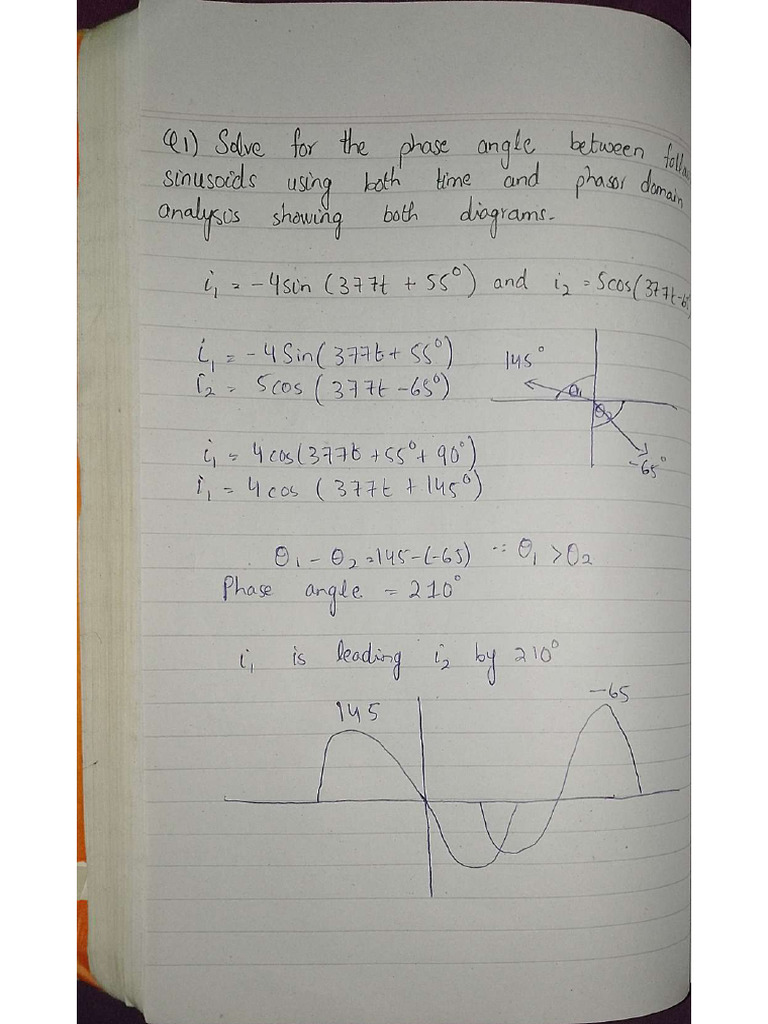 Q1) Solve for the phase angle between
sinusoids using both time and phasor domain
analysis showing both diagrams.
i₁ = -4sin (377t + 55°) and i₂ = 5cos(377t-65
i₁ = -4 Sin(377t + 55°)
i₂ = 5cos (377t -65°)
145°
θ₁
θ₂
-65°
i₁ = 4cos(377t +55°+ 90°)
i₁ = 4cos (377t +145°)
θ₁ - θ₂ =145-(-65) ∵ θ₁ > θ₂
Phase angle = 210°
i₁ is leading i₂ by 210°
145
-65